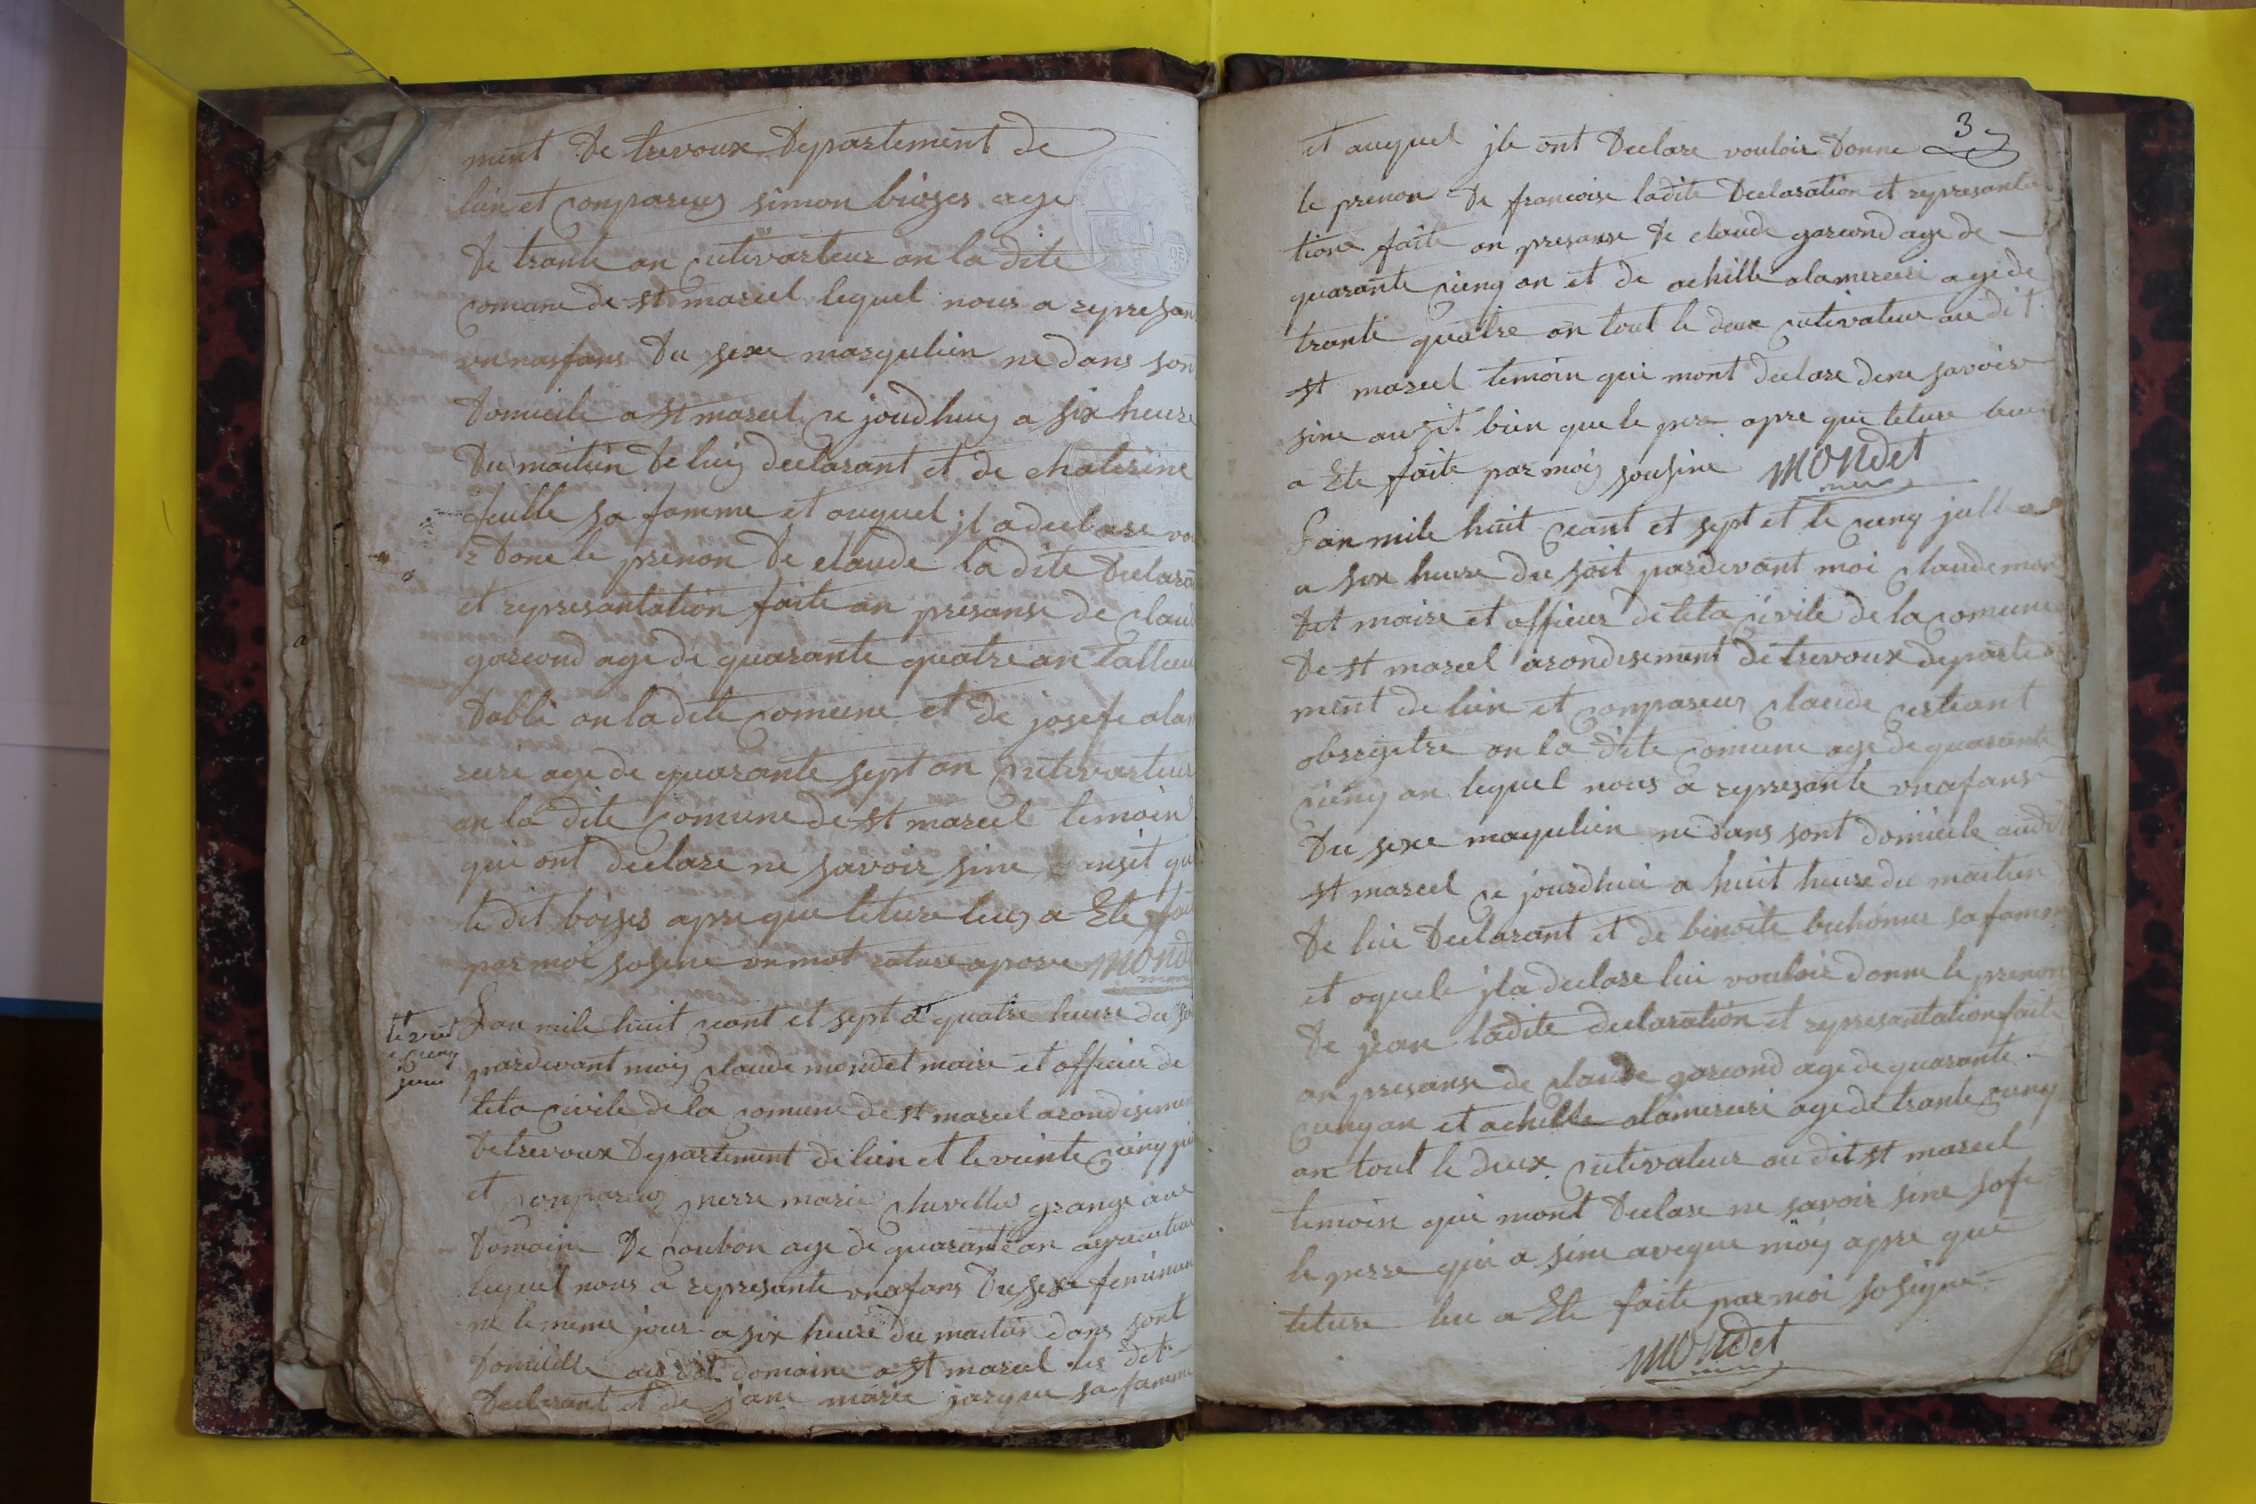 ment de trevoux departement de
lien et conpareuy simon bioges age
de trante an cutivarteur an la dite
comune de st marcel lequel nous a represan
un nanfans du sexe masqulien ne dans son
domicile a st marcel ce joudhuy a six heure
du maitien de luy declarant et de chaterine
sa famme et auquel jl a declare vou
r done le prenon de claude la dite declara
et represantation faite an presanse de claud
garcond age de quarante quatre an
dabli an la dite comune et de josefe alam
age de quarante sept an cutivarteur
an la dite comune de st marcel temoin
qui ont declare ne savoir sine ensit que
le dit boiges apre que leture leuy a Ete fait
par moi sosine un mot rature MONdet
Lan mile huit ceant et sept a quatre heure du soi
le vint
cienq
juin
pardevant moij claude mondet maire et officier de
leta civile de la comune de st marcel arondisement
de trevoux departement de lien et le veinte cienq jui
et conpareuy pierre marie chevellu grange au
domaine de coubon age de quarante an
lequel nous a represante unafans du sexe feminin
ne le meme jour a six heure du maitien dans sont
domicille au dit domaine a st marcel
declarant et de jane marie jarque sa famme
3
et auquel jle ont declare vouloir donne
le prenon de francoise ladite declaration et represanta
tion faite an presanse de claude garcond age de
quarante cienq an et de achille alamerceri age de
trante quatre an tout le deux cutivateur au dit
st marcel temoin qui mont declare dene savoire
sine ausit bien que le pere apre que leture leuy
a Ete faite par moij sousine MONdet
Lan mile huit ceant et sept et le cienq
a six heure du soit pardevant moi claude mon
det maire et officier de leta civile de la comune
de st marcel arondisement de trevoux departe
ment de lien et conpareuy claude cestiant
obregitre an la dite comune age de quarante
cienq an lequel nous a represante unafans
du sexe maqulien ne dans sont domicile audit
st marcel ce jourdhui a huit heure du maitien
de lui declarant et de benoite buhonus sa famme
et oquele jl a declare lui vouloir donne le prenon
de jean ladite declaration et represantation faite
an presanse de claude garcond age de quarante
cienq an et achille alamercuri age de trante cienq
an tout le deux cutivateur au dit st marcel
temoin qui mont declare ne savoir sine sofe
le perre qui a sine aveque moij apre que
leture leu a Ete faite par moi sosigne
MONdet